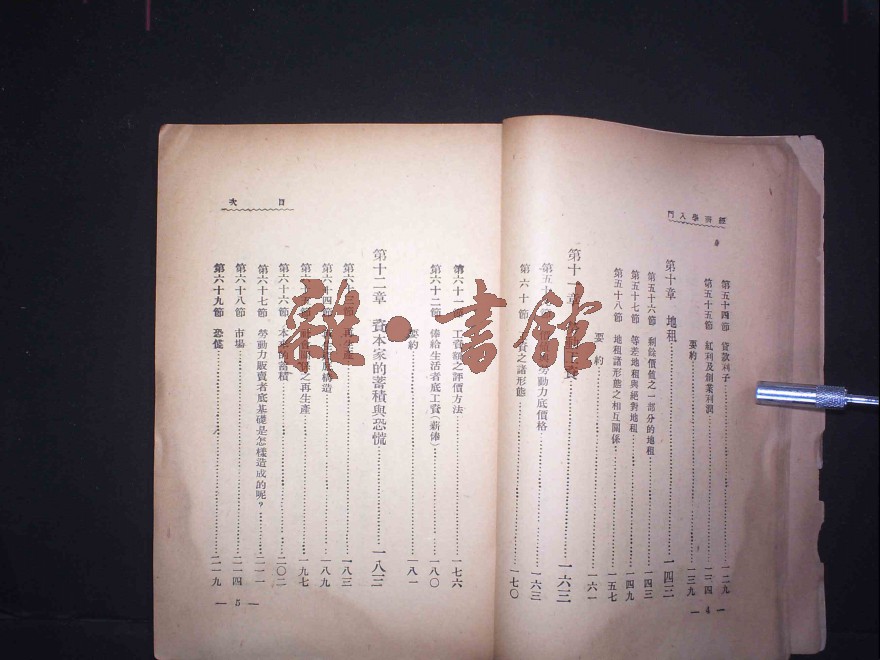 經濟學入門
第五十四節 貸款利子 一二九
第五十五節 紅利及創業利潤 一三四
要約 一三九
第十章 地租 一四三
第五十六節 剩餘價值之一部分的地租 一四三
第五十七節 等差地租與絕對地租 一四九
第五十八節 地租諸形態之相互關係 一五七
要約 一六一
第十一章 資 一六三
第五十 勞動力底價格 一六三
第六十節 資之諸形態 一七〇
— 4 —
目次
第六十一節 工資額之評價方法 一七六
第六十二節 俸給生活者底工資(薪俸) 一八〇
要約 一八一
第十二章 資本家的蓄積與恐慌 一八三
第六十三節 再生產 一八三
第六十四節 構造 一八九
第六十五節 之再生產 一九七
第六十六節 本 的蓄積 二〇二
第六十七節 勞動力販賣者底基礎是怎樣造成的呢? 二一一
第六十八節 市場 二一四
第六十九節 恐慌 二一九
— 5 —
雜·書館